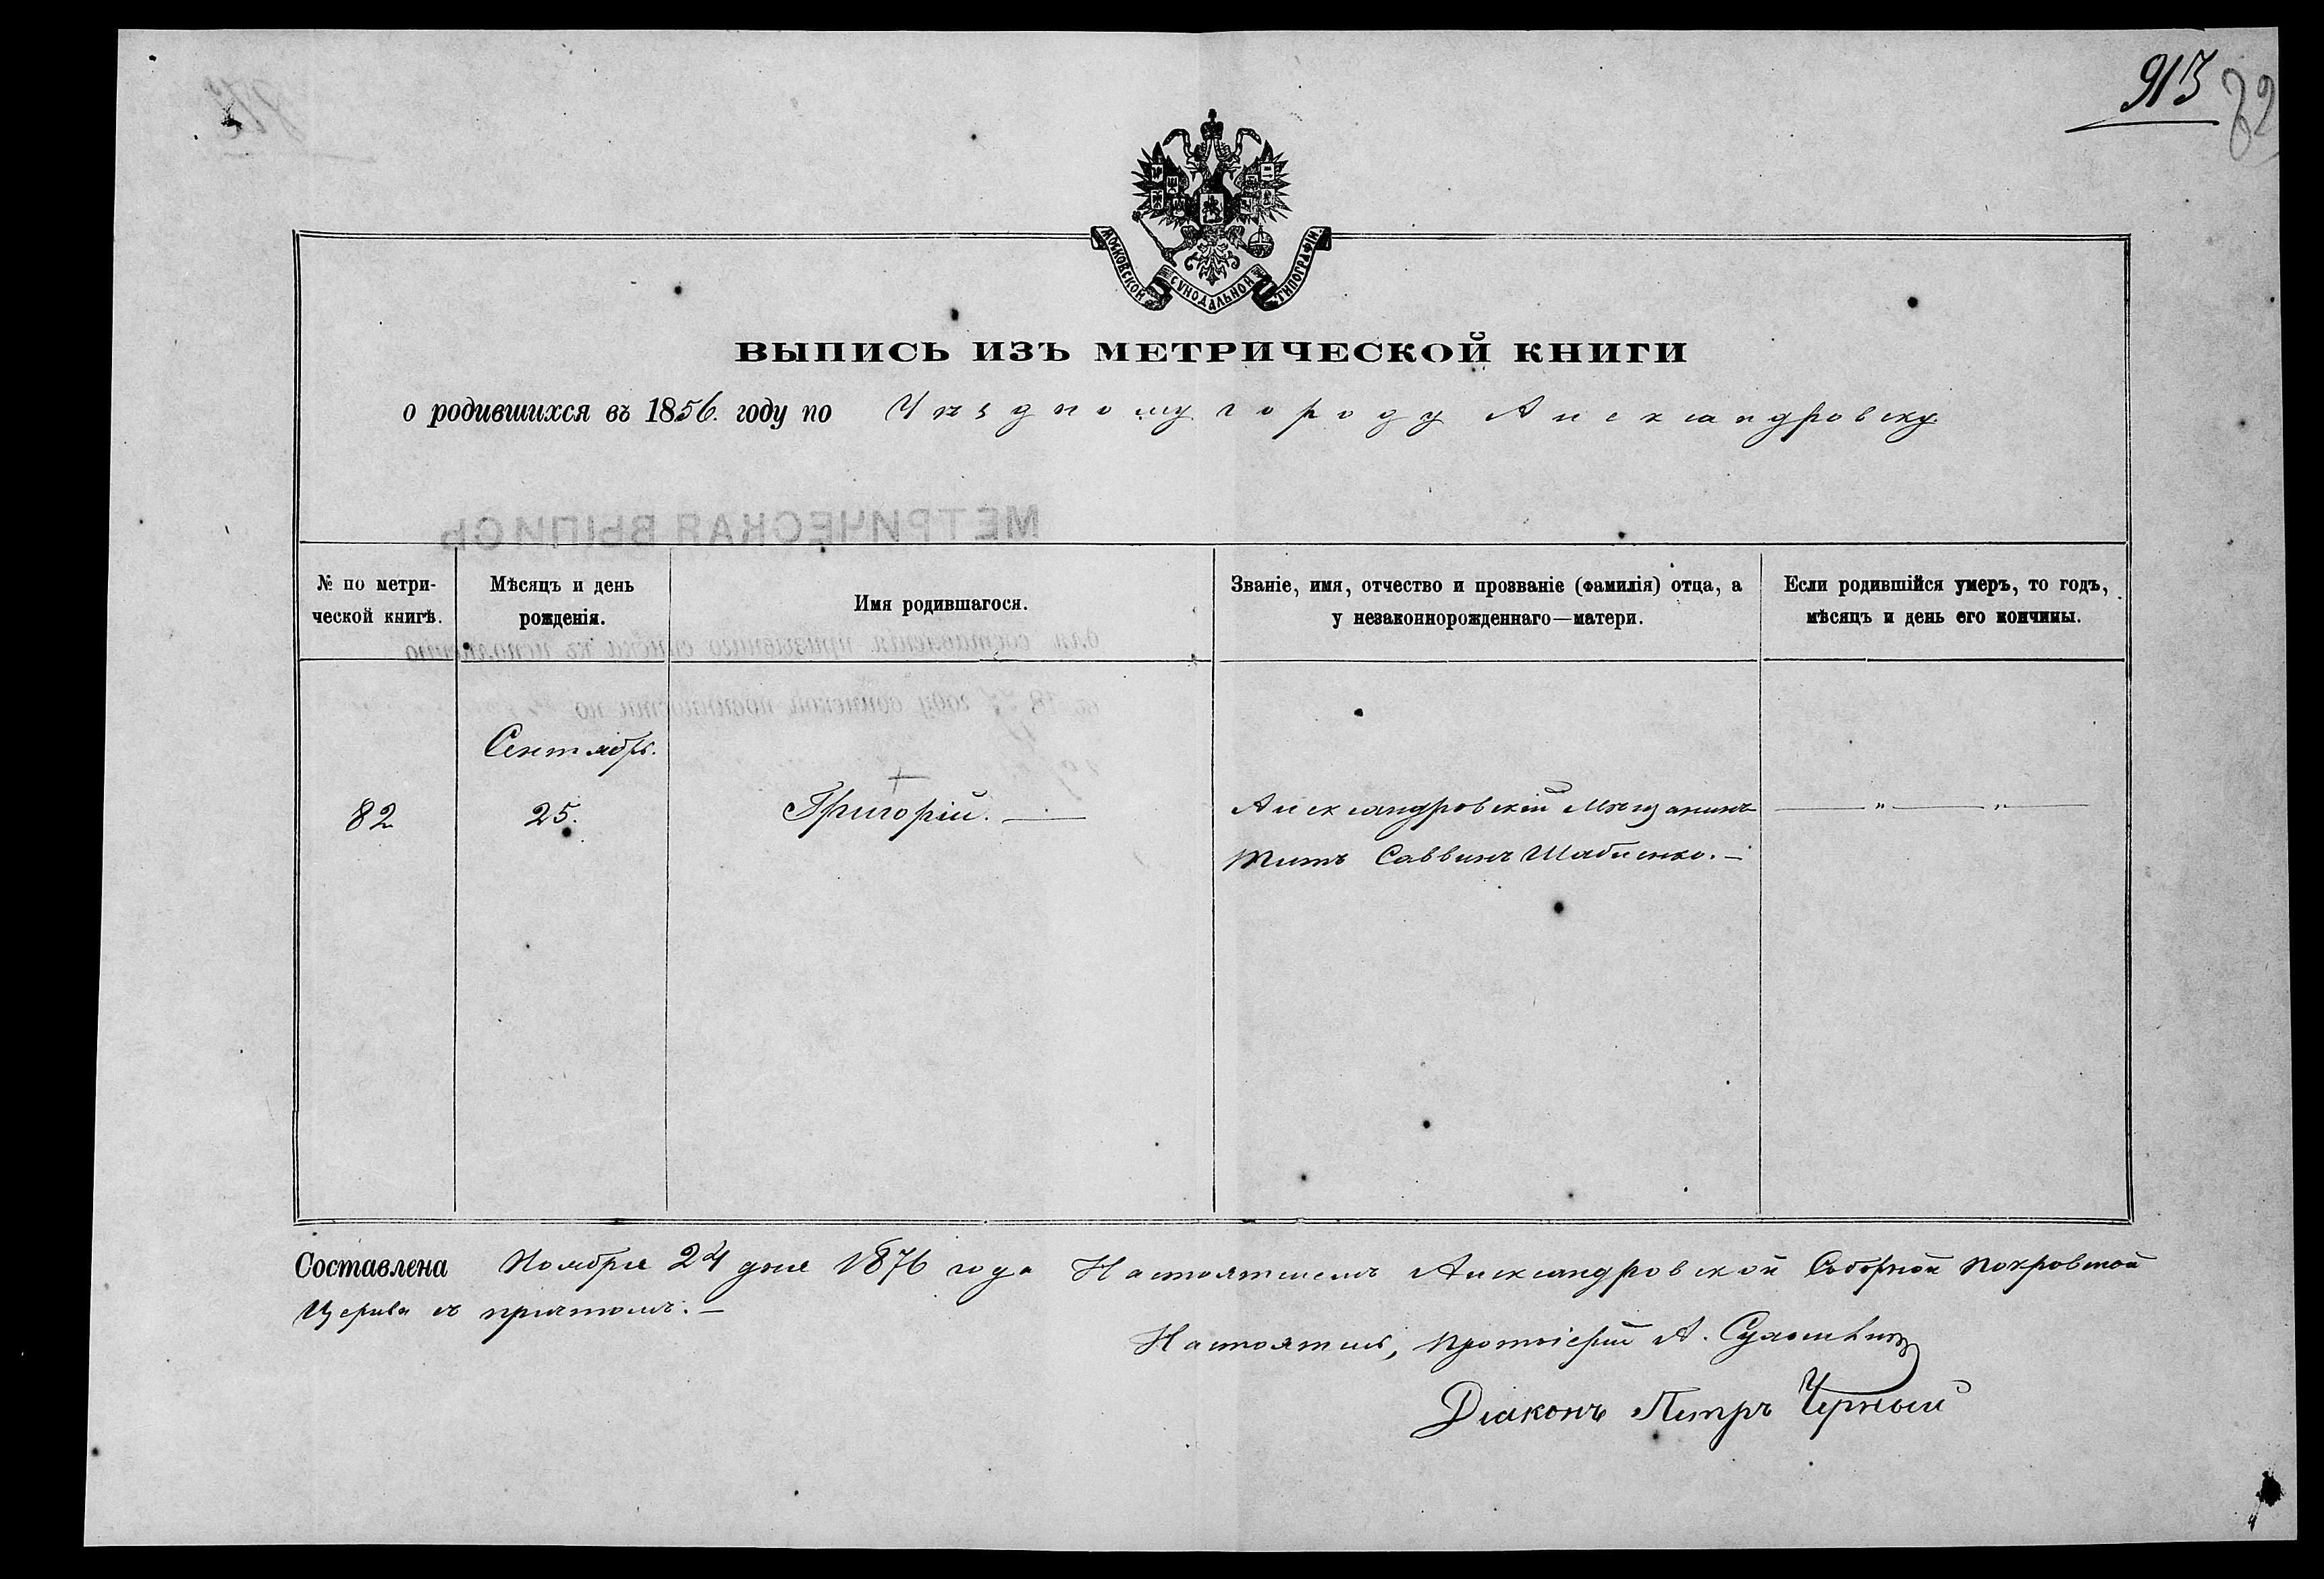 913
82
МОСКОВСКОЙ СѴНОДАЛЬНОЙ ТИПОГРАФІИ
ВЫПИСЬ ИЗЪ МЕТРИЧЕСКОЙ КНИГИ
о родившихся въ 1856. году по Уѣздному городу Александровску.
МЕТРИЧЕСКАЯ ВЫПИСЬ
№ по метри-
ческой книгѣ.
Мѣсяцъ и день
рожденія.
Имя родившагося.
Званіе, имя, отчество и прозваніе (фамилія) отца, а
у незаконнорожденнаго—матери.
Если родившійся умеръ, то годъ,
мѣсяцъ и день его кончины.
для составленія призывнаго списка къ исполненію
въ 18 году воинской повинности по
Сентябрь.
82
25.
Григорій. —
Александровскій Мѣщанинъ
Титъ Саввинъ Шабленко. —
— " — " —
Составлена Ноября 24 дня 1876 года Настоятелемъ Александровской Соборной Покровской
Церкви съ причтомъ. —
Настоятель, Протоіерей А.
Діаконъ Петръ Черный